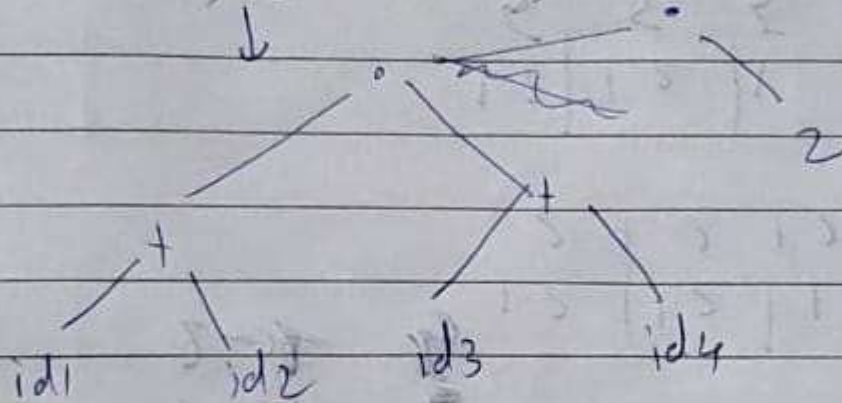 ·
·
2
+
+
id1 id2 id3 id4